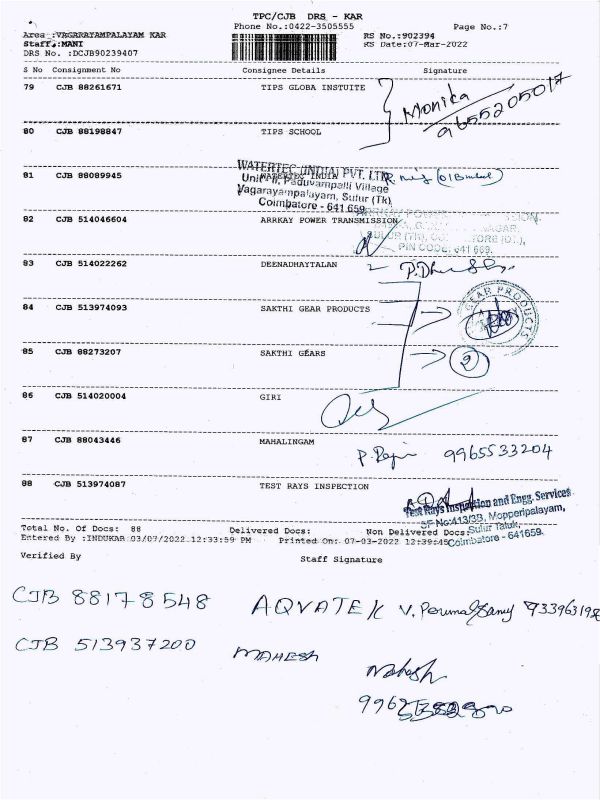 TPC/CJB DRS - KAR
Phone No.:0422-3505555 Page No.:7
Area :VAGARAYAMPALAYAM KAR RS No.:902394
Staff.:MANI RS Date:07-Mar-2022
DRS No. :DCJB90239407
S No Consignment No Consignee Details Signature
79 CJB 88261671 TIPS GLOBA INSTUITE
Monika
9655205017
80 CJB 88198847 TIPS SCHOOL
WATERTEC (INDIA) PVT. LTD.
81 CJB 88089945 WATERTEC INDIA
Unit-II, Paduvampalli Village
Vagarayampalayam, Sulur (Tk),
Coimbatore - 641 659
82 CJB 514046604 ARRKAY POWER TRANSMISSION
PIN CODE: 641 669.
83 CJB 514022262 DEENADHAYTALAN
84 CJB 513974093 SAKTHI GEAR PRODUCTS
GEAR PRODUCTS
85 CJB 88273207 SAKTHI GEARS 2
86 CJB 514020004 GIRI
87 CJB 88043446 MAHALINGAM
9965533204
88 CJB 513974087 TEST RAYS INSPECTION
Test Rays Inspection and Engg. Services
SF No:413/3B, Mopperipalayam,
Sulur Taluk,
Coimbatore - 641659.
Total No. Of Docs: 88 Delivered Docs: Non Delivered Docs:
Entered By :INDUKAR 03/07/2022 12:33:59 PM Printed On: 07-03-2022 12:39:45
Verified By Staff Signature
CJB 88178548 AQVATEK V. Perumalsamy
CJB 513937200 MAHESH
Mahesh